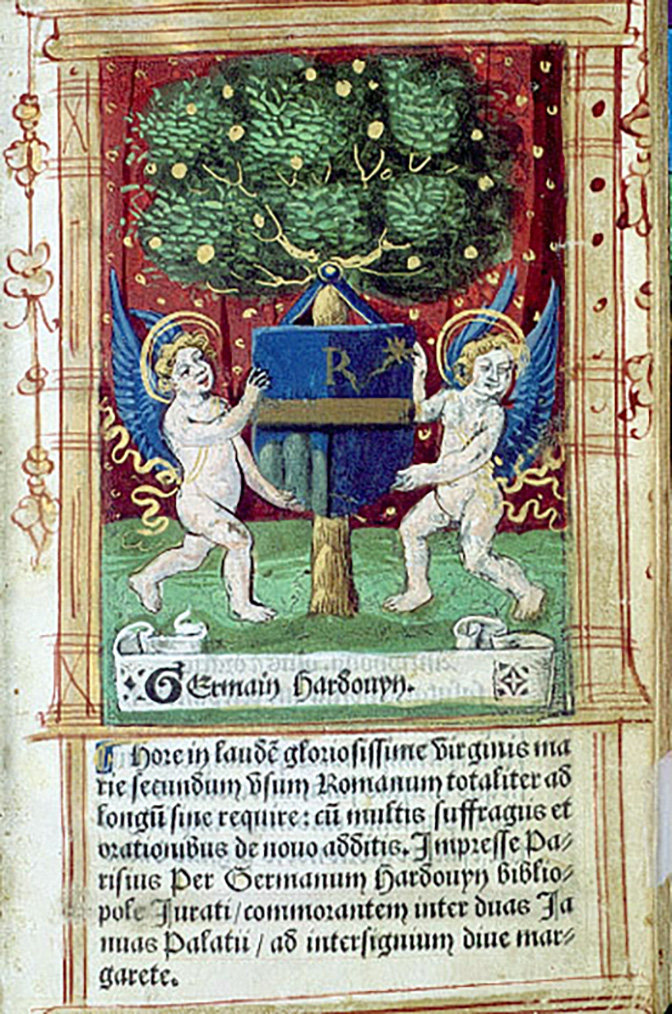 R
Germain Hardouyn.
Hore in laudē gloriosissime virginis ma
rie secundum vsum Romanum totaliter ad
longū sine require: cū multis suffragiis et
orationibus de nouo additis. Impresse Pa⸗
risius Per Germanum Hardouyn biblio⸗
pole Jurati/commorantem inter duas Ja
nuas Palatii / ad intersignium diue mar⸗
garete.